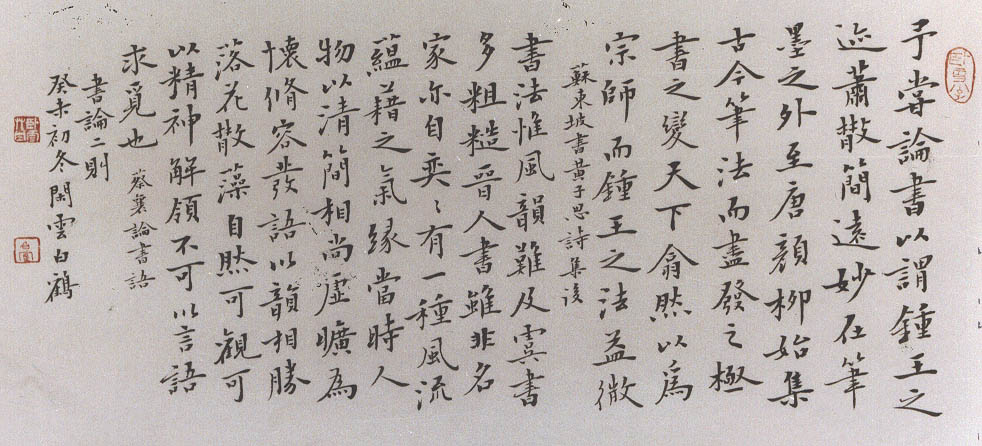 予嘗論書以謂鍾王之
迹蕭散簡遠妙在筆
墨之外至唐顏柳始集
古今筆法而盡發之極
書之變天下翕然以為
宗師而鍾王之法益微
蘇東坡書黃子思詩集後
書法惟風韻難及虞書
多粗糙晉人書雖非名
家亦自奕〻有一種風流
蘊藉之氣緣當時人
物以清簡相尚虛曠為
懷脩容發語以韻相勝
落花散藻自然可觀可
以精神解領不可以言語
求覓也 蔡襄論書語
書論二則
癸未初冬閑雲白鶴